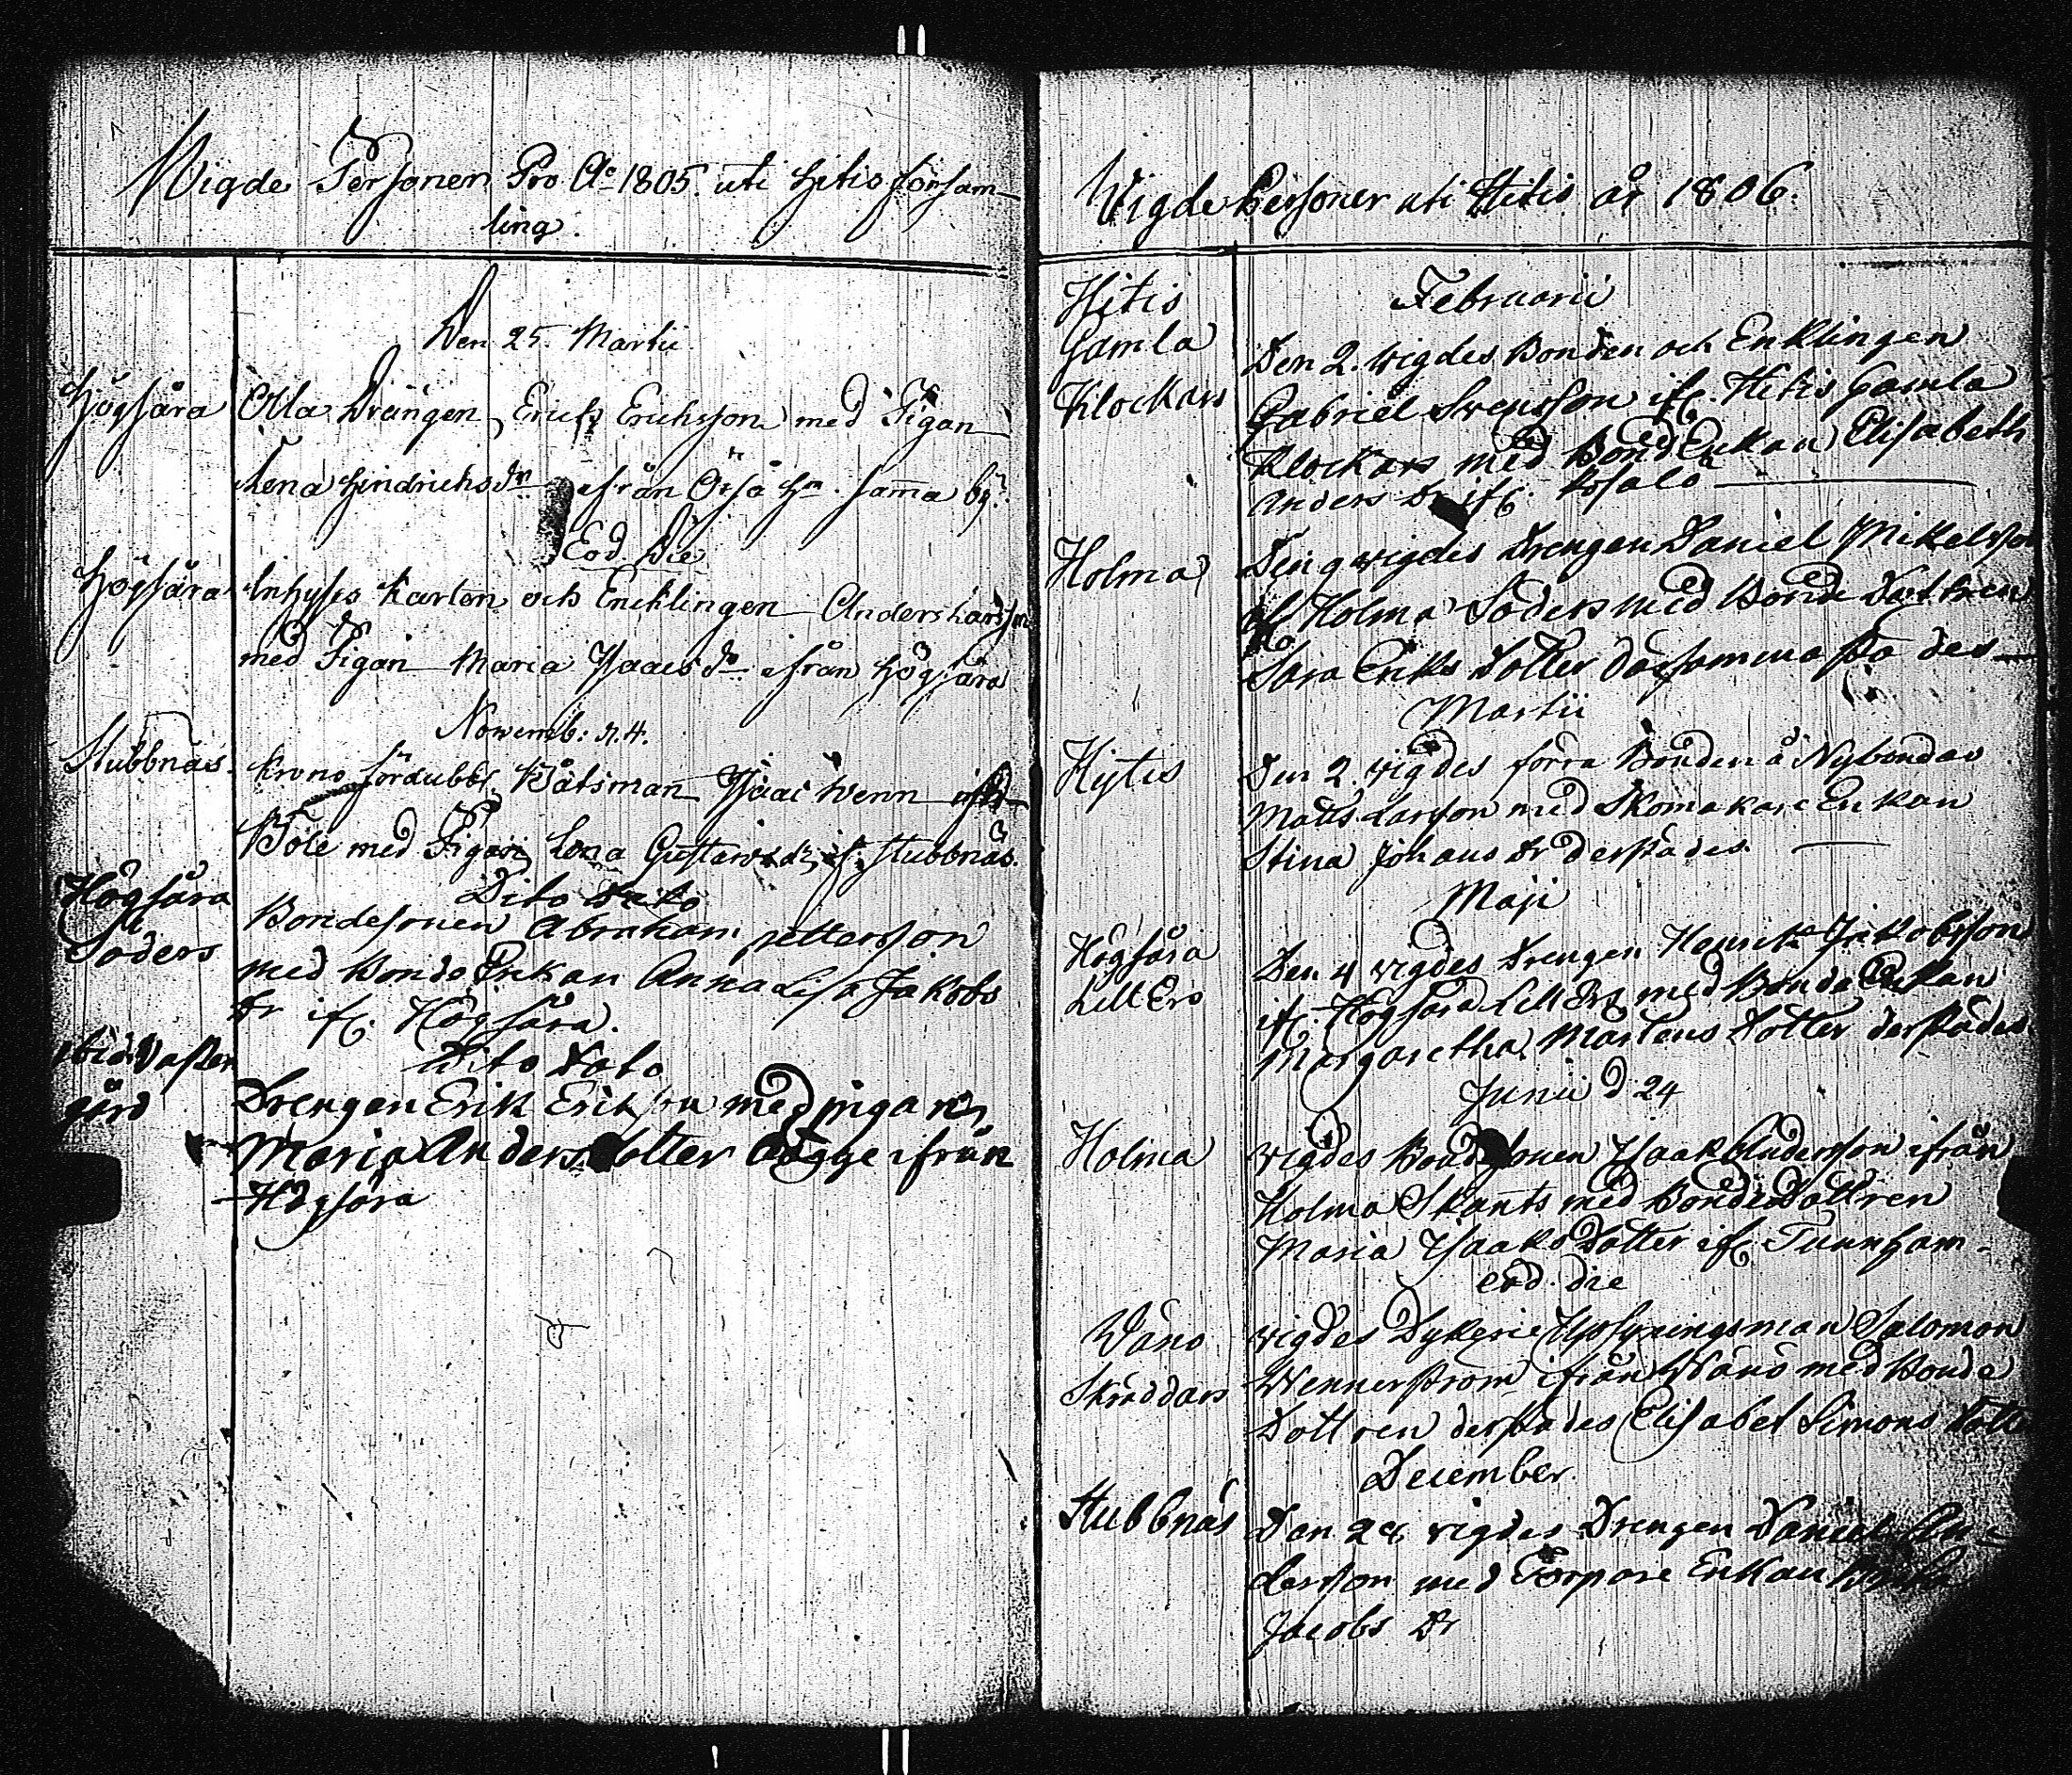 Wigde Personer Pro Ao 1805. uti Hitis församling.
Den 25. Martii
Högsåra
Olla Drängen, Erich Erichsson med Pigan
Lena Hindrichsdr ifrån Örsö Hn. samma by.
Eod. Die
Högsåra
Inhyses Karlen och Encklingen Anders Larsson
med Pigan Maria Isaacs dr ifrån Högsåra
Novemb: d. 4.
Stubbnäs.
Krono fördubbl. Båtsman Isaac Wenn
Böle med Pigan Lena Gustavs dr. if. Stubbnäs.
Dito Dato
Högsåra
Söders
Bondesonen Abraham pettersson
med Bonde Enkan Anna Lisa Jakobs
Dr if. Högsåra.
Dito Dato
ibid Wester
gård
Drengen Erik Eriksson med pigan
Maria Andersdotter bägge ifrån
Högsåra
Wigde Personer uti Hitis år 1806.
Hitis
Gamla
Klockars
Februarii
Den 2. wigdes Bonden och Enklingen
Gabriel Svensson if. Hitis Gamla
Klockars med Bond Enkan Elisabeth
Anders Dr if. Rosala
Holma
Den 9 wigdes Drengen Daniel Mikelsson
if. Holma Söders med Bonde Dottren
Sara Eriks Dotter dersammastädes
Martii
Hytis
Den 2. wigdes förra Bonden å Nybondas
Matts Larsson med Skomakare Enkan
Stina Johans Dr derstädes.
Maji
Högsåra
Lill Ers
Den 4 wigdes Drengen Henrik Jakobsson
if. Högsåra Lill Ers med Bonde Enkan
Margaretha Mårtens Dotter derstädes
Junii d 24
Holma
wigdes Bondesonen Isaak Andersson ifrån
Holma Skants med Bonde Dottren
Maria Isaaks Dotter if. Tunnhamn
eod. die
Wänö
Skräddars
wigdes Dykerie Upsyningsman Salomon
Wennerström ifrån Wänö med Bonde
Dottren derstädes Elisabet Simons Dott
December
Stubbnäs
Den 28 wigdes Drengen Daniel An-
dersson med Torpare Enkan
Jacobs Dr